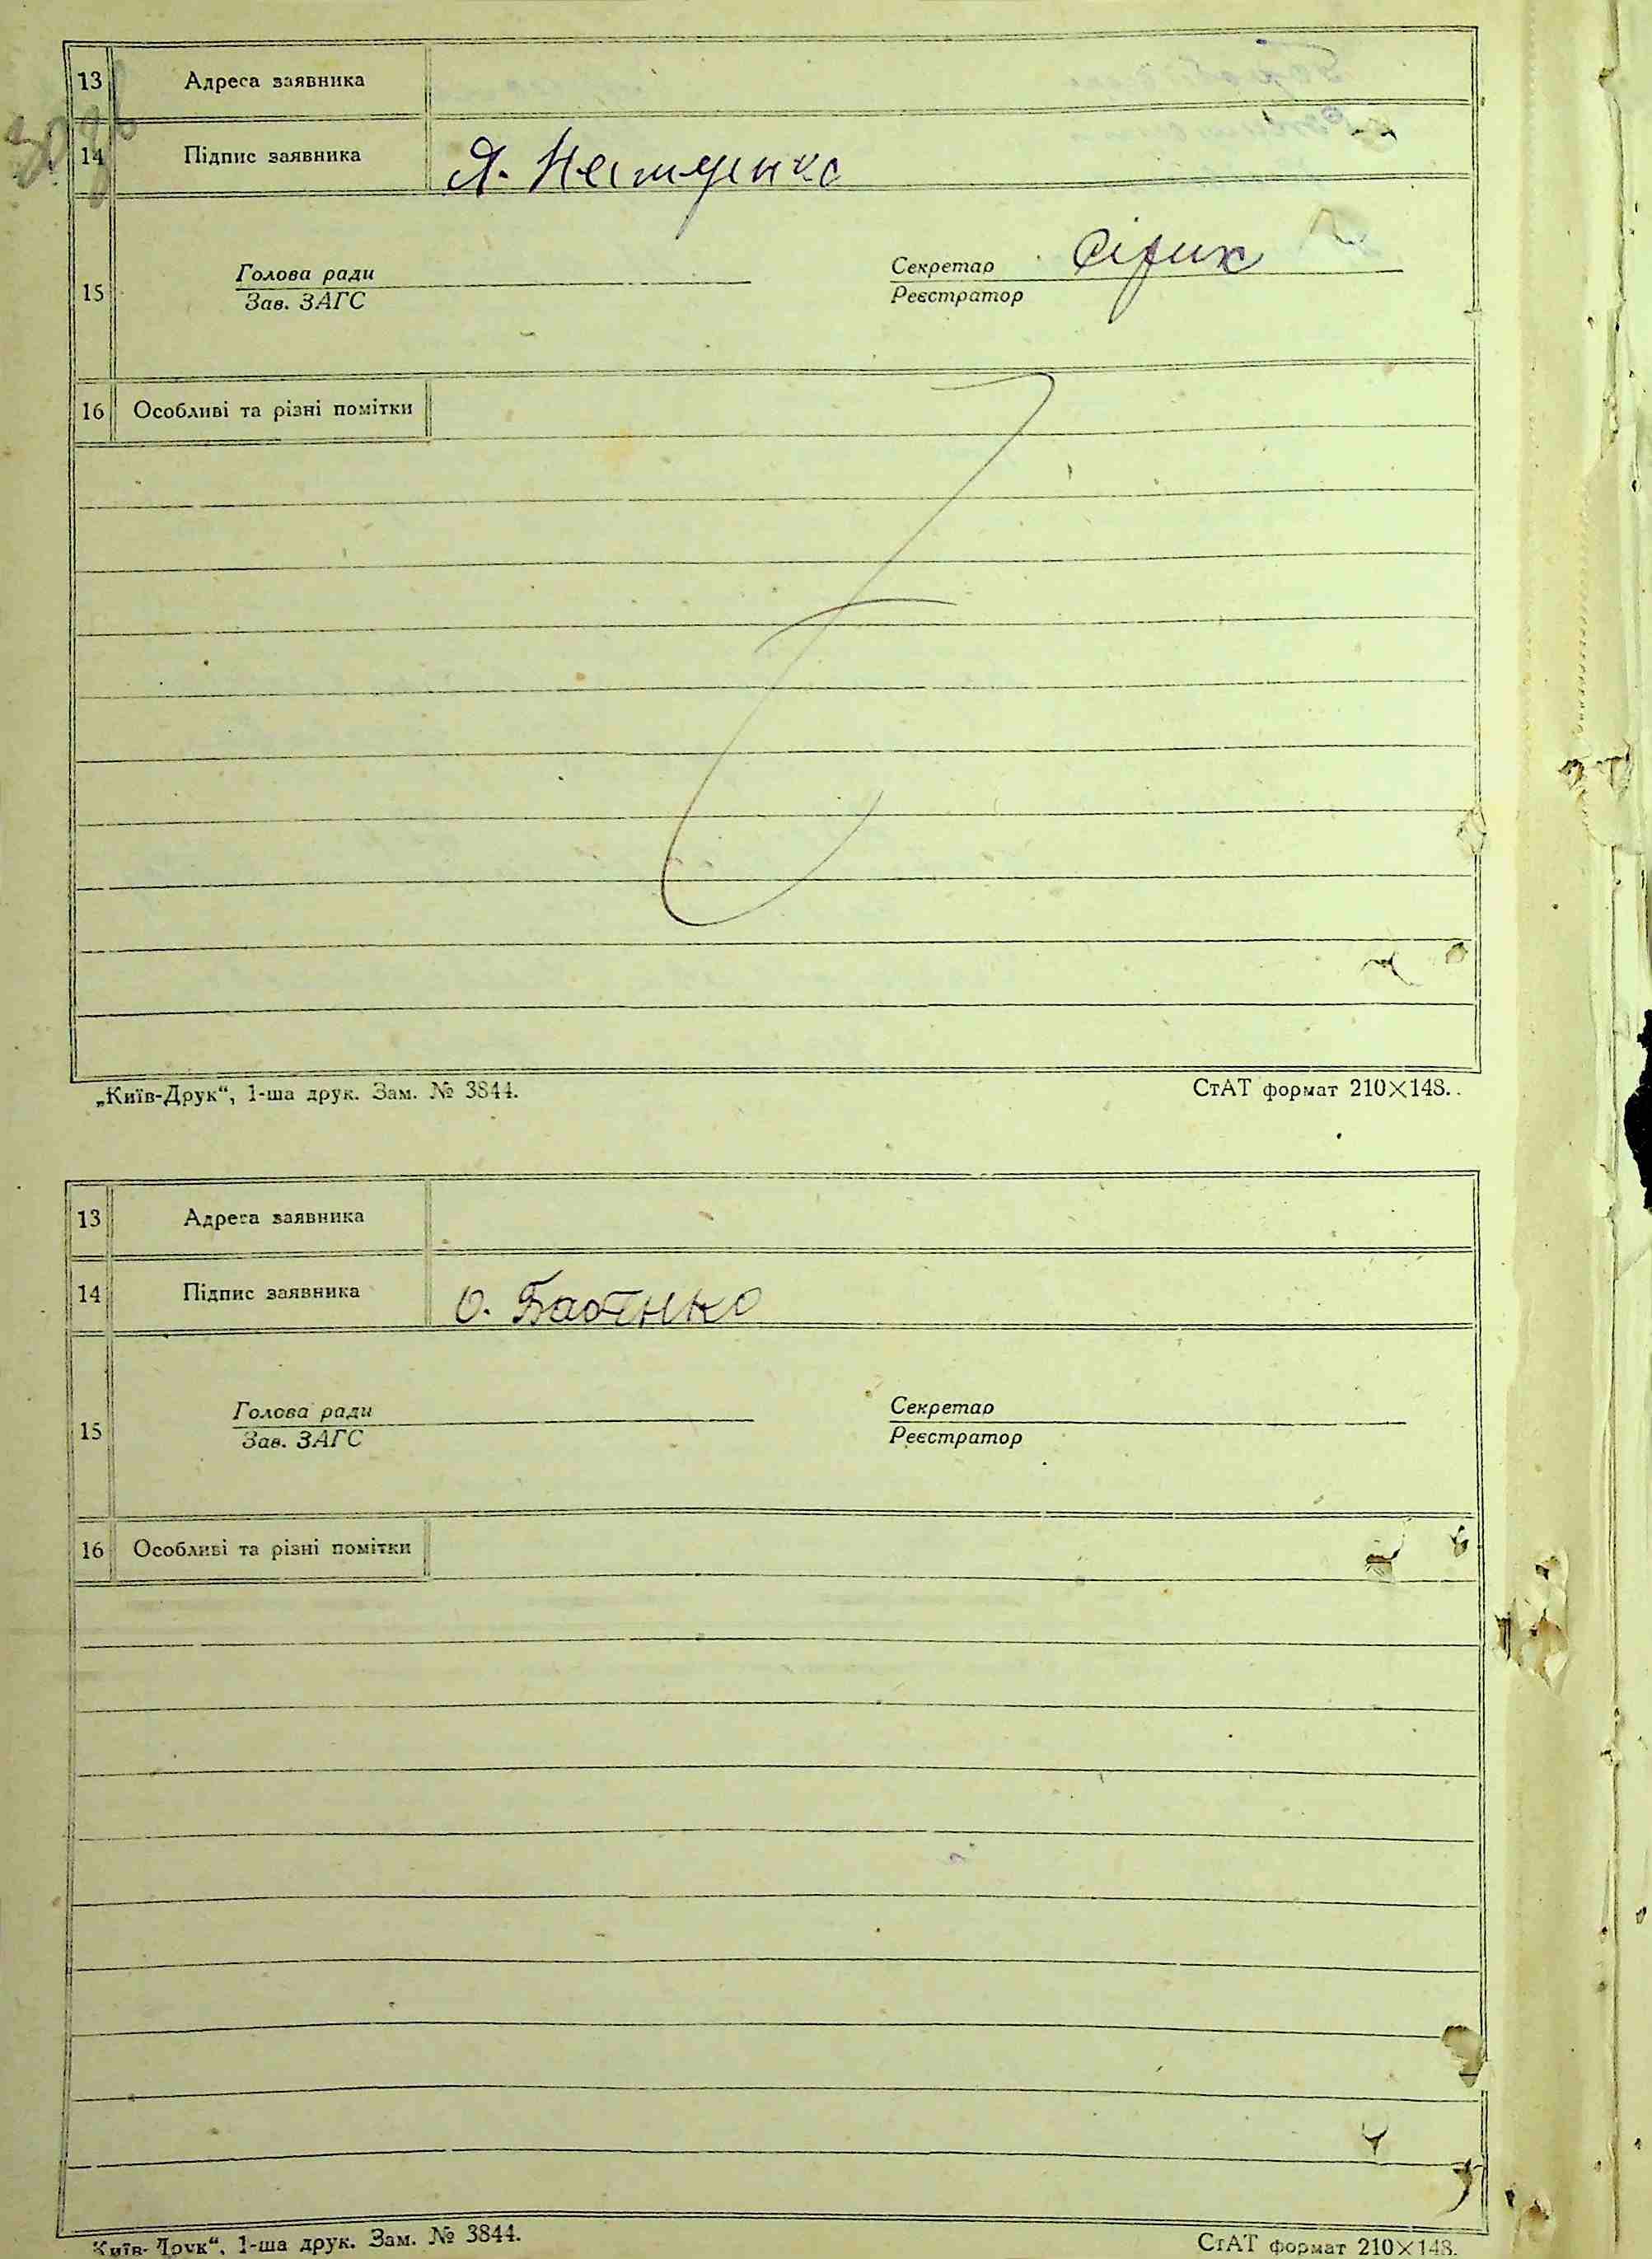 13 Адреса заявника
14 Підпис заявника Я.
15 Голова ради Секретар Сірик
Зав. ЗАГС Реєстратор
16 Особливі та різні помітки
„Київ-Друк“, 1-ша друк. Зам. № 3844. СтАТ формат 210×148.
13 Адреса заявника
14 Підпис заявника О.
15 Голова ради Секретар
Зав. ЗАГС Реєстратор
16 Особливі та різні помітки
„Київ-Друк“, 1-ша друк. Зам. № 3844. СтАТ формат 210×148.